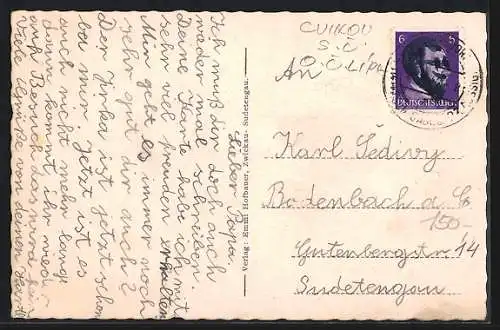 Lieber Papa!
Ich muß dir doch auch
wieder mal schreiben.
Deine Karte habe ich mit
sehr viel freuden erhalten
Mir geht es immer noch
sehr gut dir auch?
Der Jirka ist jetzt schon
bei mir jetzt ist es
auch nicht mehr lange
dann kommt ihr wieder
auf Besuch das wird fein
Viele Grüße von deinen
Verlag: Emml Hofbauer, Zwickau - Sudetengau.
CVIKOV
S.Č.
O Č. LÍPA
An
6
Deutsches Reich
Karl Sedivy
Bodenbach a E
150-
Gutenbergstr 14
Sudetengau